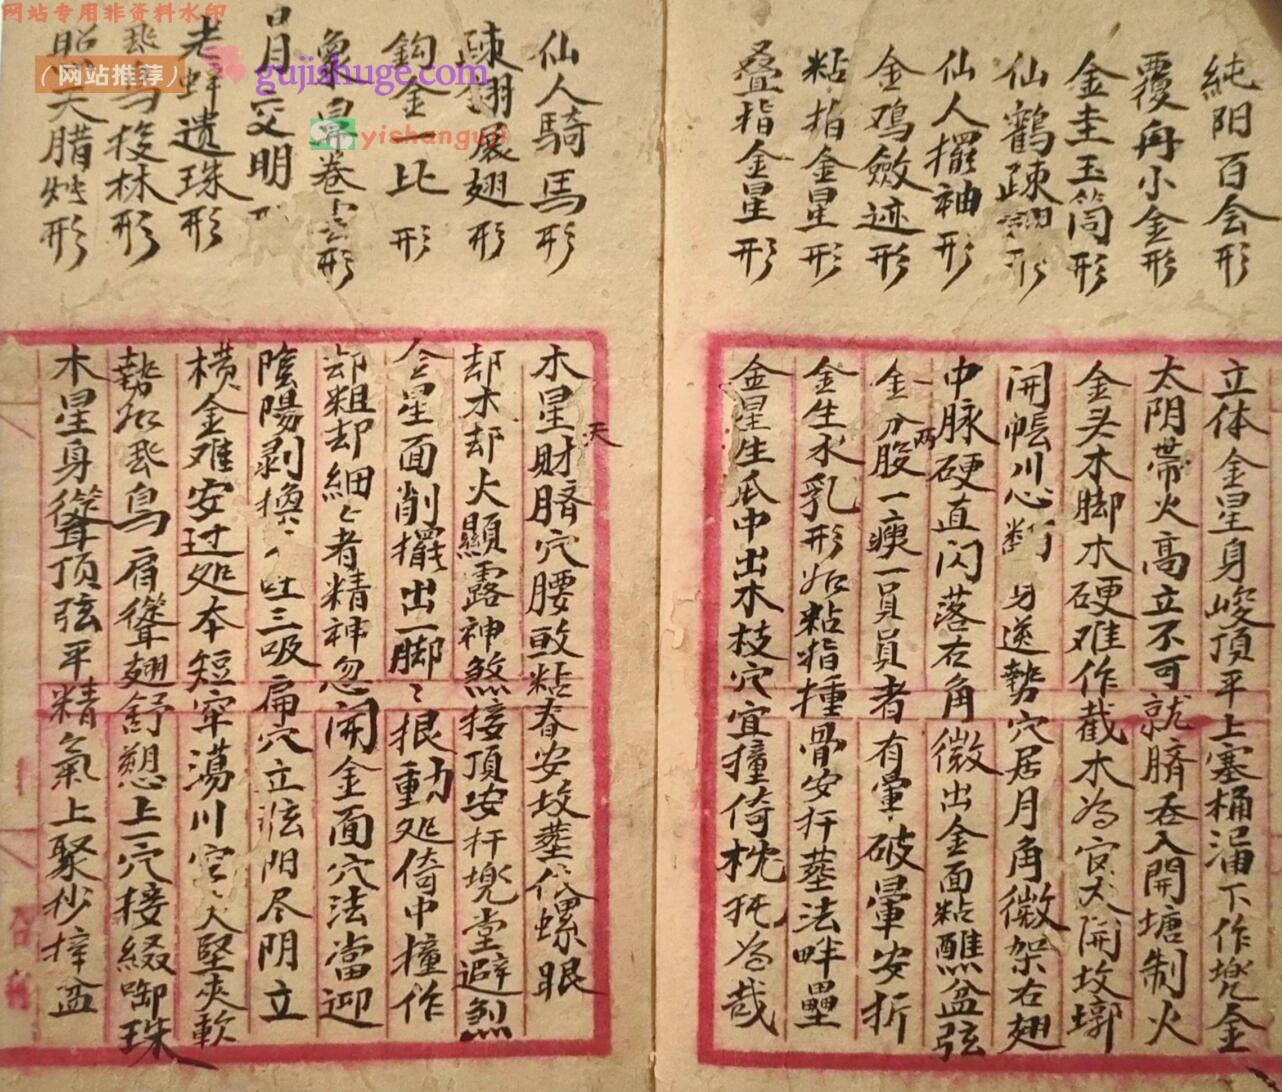 网站专用非资料水印
（网站推荐）
gujishuge.com
yishanguji
純阳百会形
覆舟小金形
金圭玉筒形
仙鶴疎翅形
仙人擺袖形
金鸡斂迹形
粘指金星形
叠指金星形
立体金星身峻頂平上塞桶漏下作兠金
太阴帶火高立不可就臍吞入開塘制火
金头木脚木硬难作截木為官大開坟墎
開帳川心断身送势穴居月角微架右翅
中脉硬直闪落右角微出金面粘醮盆弦
金分两股一瘦一員員者有暈破暈安折
金生水乳形如粘指撞骨安扦塟法畔壘
金星生瓜中出木枝穴宜撞倚枕托為哉
仙人騎馬形
疎翅展翅形
鈎金比形
象鼻卷云形
日月交明形
老蚌遗珠形
飛鸟投林形
照天腊烛形
木星財臍穴腰畝粘春安坟塟似螺眼天
却木却火顯露神煞接頂安扦兠堂避煞
金星面削擺出一脚〻振動処倚中撞作
却粗却細〻者精神忽開金面穴法當迎
陰陽剥換吐三吸扁穴立弦阳尽阴立
横金难安过処本短窂蕩川宫大堅夾軟
勢如飛鳥肩聳翅舒憩上一穴接綴啣珠
木星身聳頂弦平精氣上聚杪撁盆